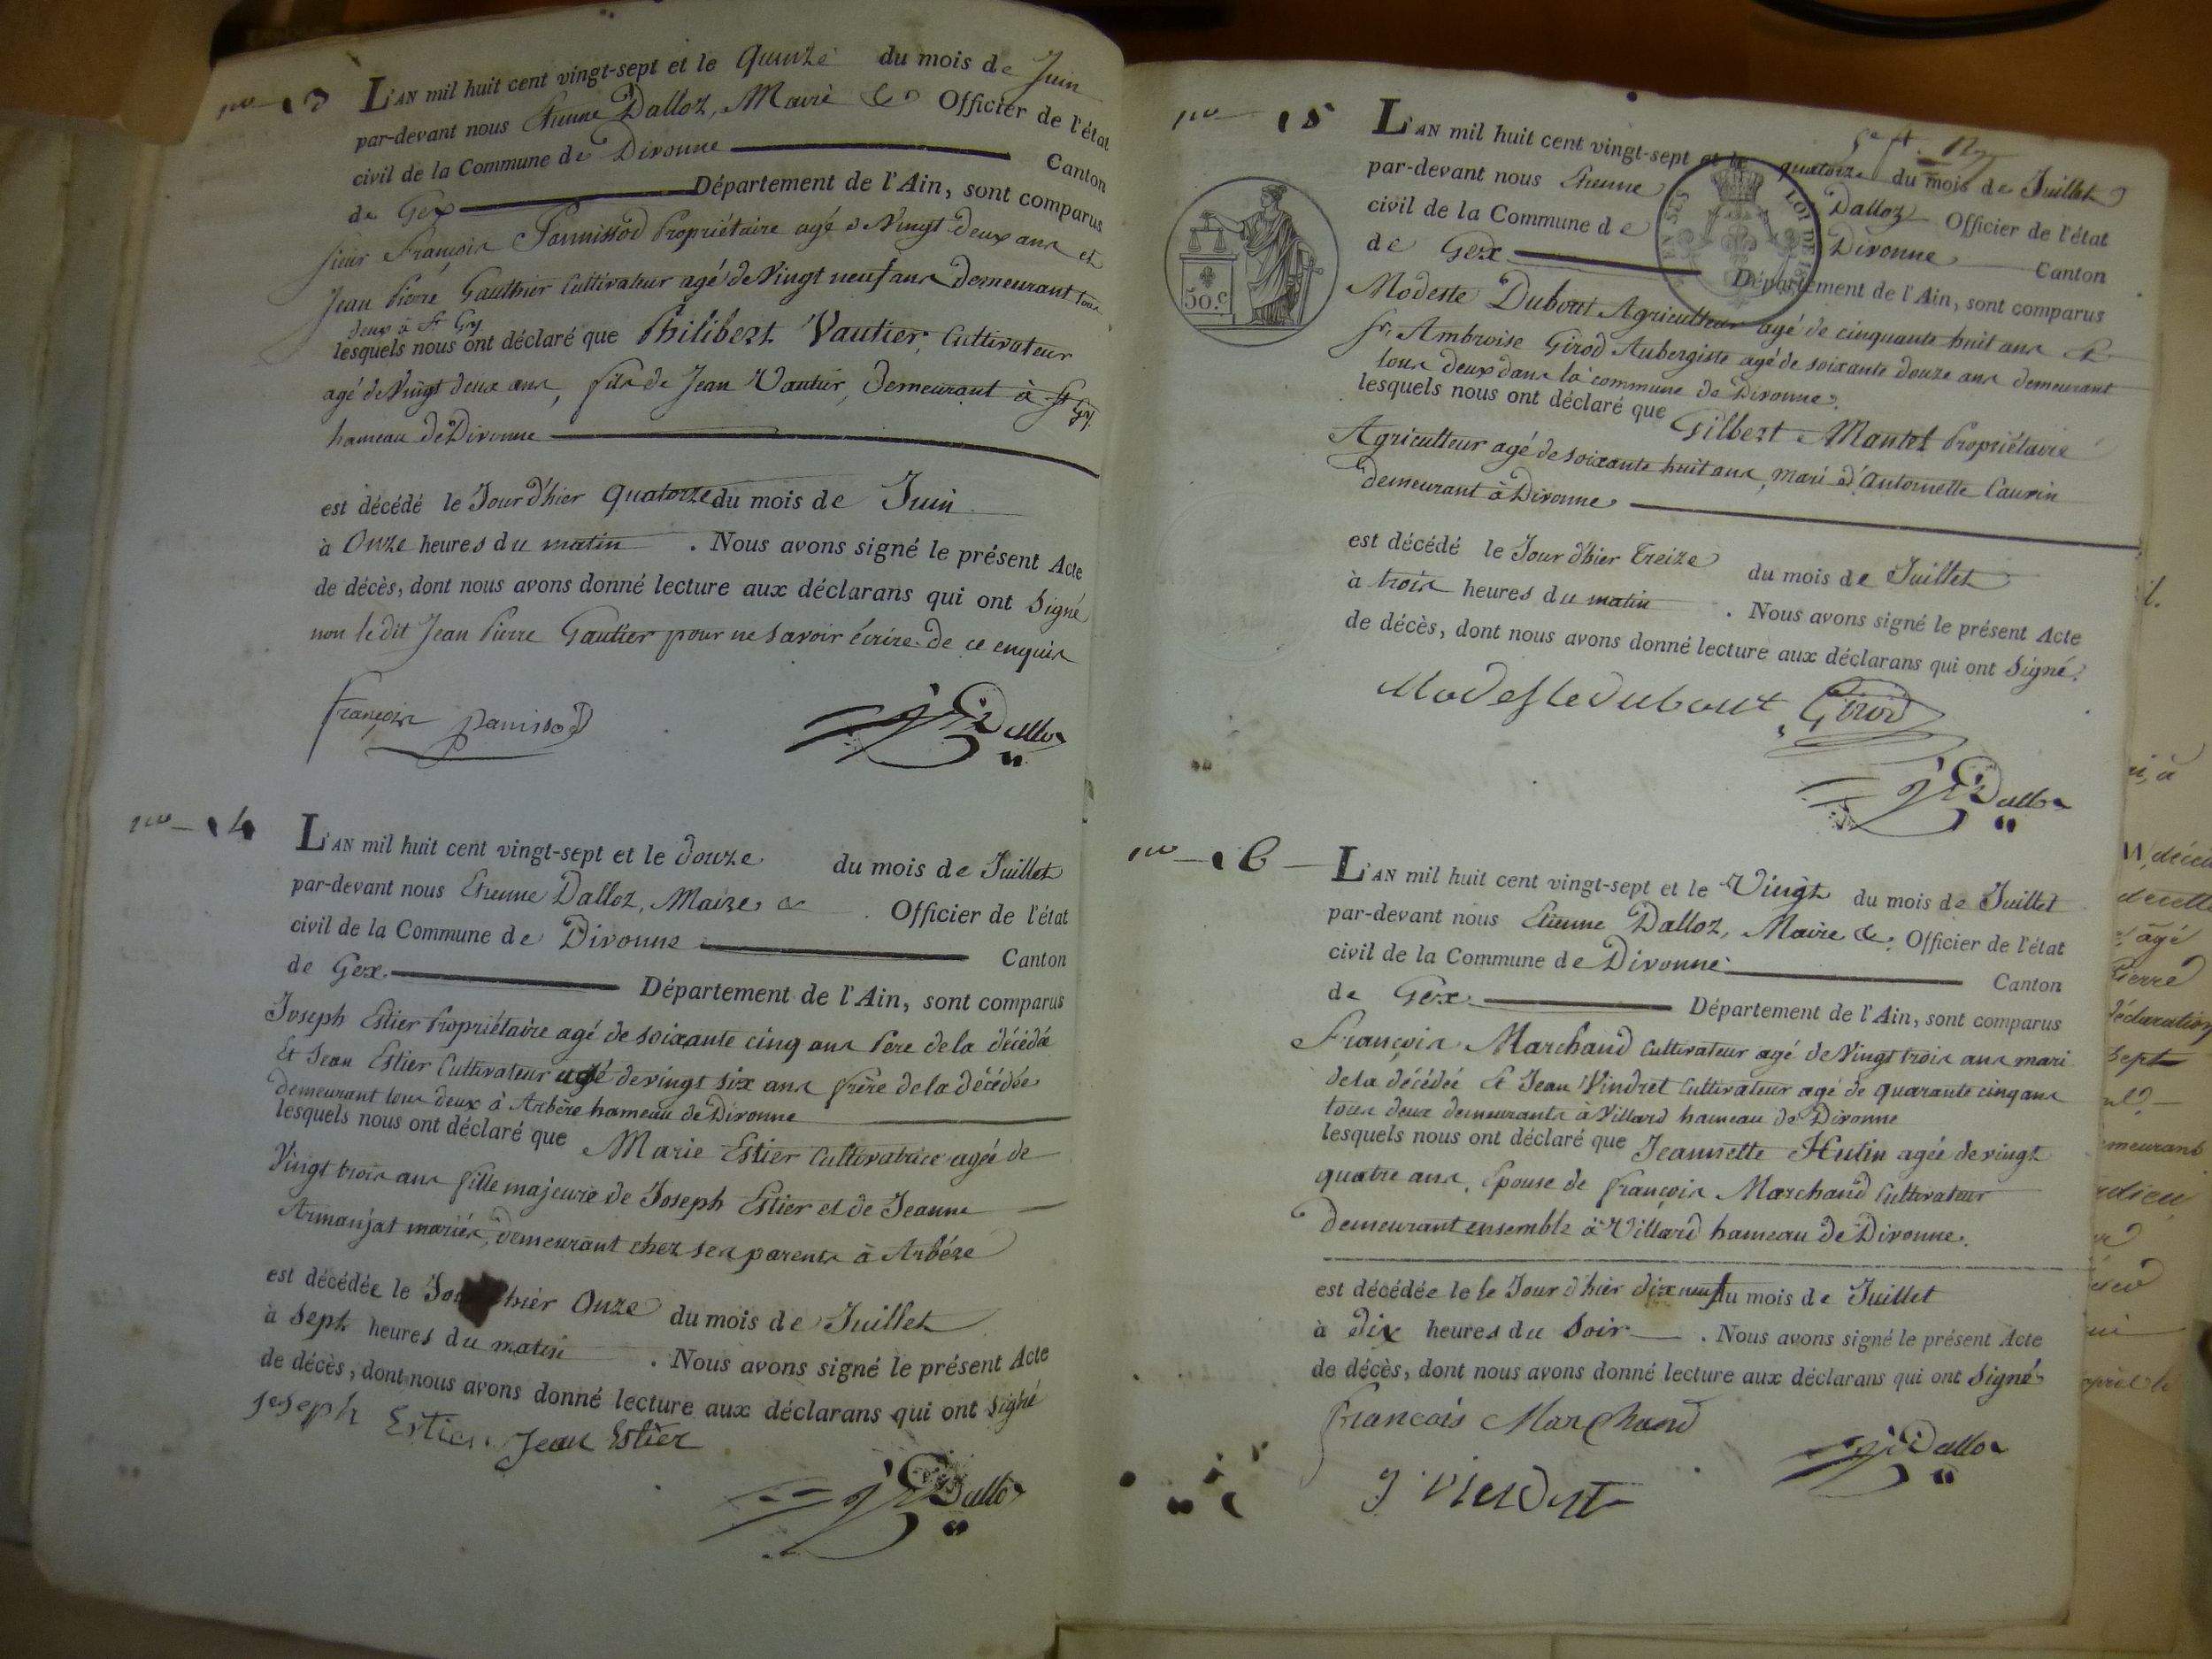 no 13
L'AN mil huit cent vingt-sept et le Quinze du mois de Juin
par-devant nous Etienne Dalloz, Maire & Officier de l'état
civil de la Commune de Divonne Canton
de Gex Département de l'Ain, sont comparus
sieur François Pannissod Propriétaire agé de Vingt deux ans et
Jean Pierre Gauthier Cultivateur agé de Vingt neuf ans demeurant tous
deux à St Gy
lesquels nous ont déclaré que Philibert Vautier, Cultivateur
agé de Vingt deux ans, fils de Jean Vautier, Demeurant à St Gy
hameau de Divonne
est décédé le Jour d'hier Quatorze du mois de Juin
à Onze heures du matin . Nous avons signé le présent Acte
de décès, dont nous avons donné lecture aux déclarans qui ont Signé
non le dit Jean Pierre Gautier pour ne savoir écrire de ce enquis
françois panissod
Dalloz
no 14
L'AN mil huit cent vingt-sept et le douze du mois de Juillet
par-devant nous Etienne Dalloz, Maire & Officier de l'état
civil de la Commune de Divonne Canton
de Gex Département de l'Ain, sont comparus
Joseph Estier Propriétaire agé de soixante cinq ans Pere de la décédée
Et Jean Estier Cultivateur agé de vingt six ans frère de la décédée
demeurant tous deux à Arbère hameau de Divonne
lesquels nous ont déclaré que Marie Estier Cultivatrice agée de
Vingt trois ans fille majeure de Joseph Estier et de Jeanne
Armanjat mariés, demeurant chez ses parents à Arbéré
est décédée le Jour d'hier Onze du mois de Juillet
à Sept heures du matin . Nous avons signé le présent Acte
de décès, dont nous avons donné lecture aux déclarans qui ont signé
joseph Estier Jean Estier
Dalloz
no 15
L'AN mil huit cent vingt-sept et le quatorze du mois de Juillet
par-devant nous Etienne Dalloz Officier de l'état
civil de la Commune de Divonne Canton
de Gex Département de l'Ain, sont comparus
50.c
Modeste Dubout Agriculteur agé de cinquante huit ans &
sr Ambroise Girod Aubergiste agé de soixante douze ans demeurant
tous deux dans la commune de Divonne
lesquels nous ont déclaré que Gilbert Mantel Propriétaire
Agriculteur agé de soixante huit ans, mari d'Antoinette Caurin
demeurant à Divonne
est décédé le Jour d'hier Treize du mois de Juillet
à trois heures du matin . Nous avons signé le présent Acte
de décès, dont nous avons donné lecture aux déclarans qui ont Signé
Modeste dubout Girod
Dalloz
no 16
L'AN mil huit cent vingt-sept et le Vingt du mois de Juillet
par-devant nous Etienne Dalloz, Maire & Officier de l'état
civil de la Commune de Divonne Canton
de Gex Département de l'Ain, sont comparus
François Marchand Cultivateur agé de Vingt trois ans mari
de la décédée Et Jean Vindret Cultivateur agé de quarante cinq ans
tous deux demeurants à Villard hameau de Divonne
lesquels nous ont déclaré que Jeannette Hutin agée de vingt
quatre ans, Epouse de françois Marchand Cultivateur
demeurant ensemble à Villard hameau de Divonne.
est décédée le le Jour d'hier dix neuf du mois de Juillet
à Dix heures du Soir . Nous avons signé le présent Acte
de décès, dont nous avons donné lecture aux déclarans qui ont Signé
francois Marchand
Dalloz